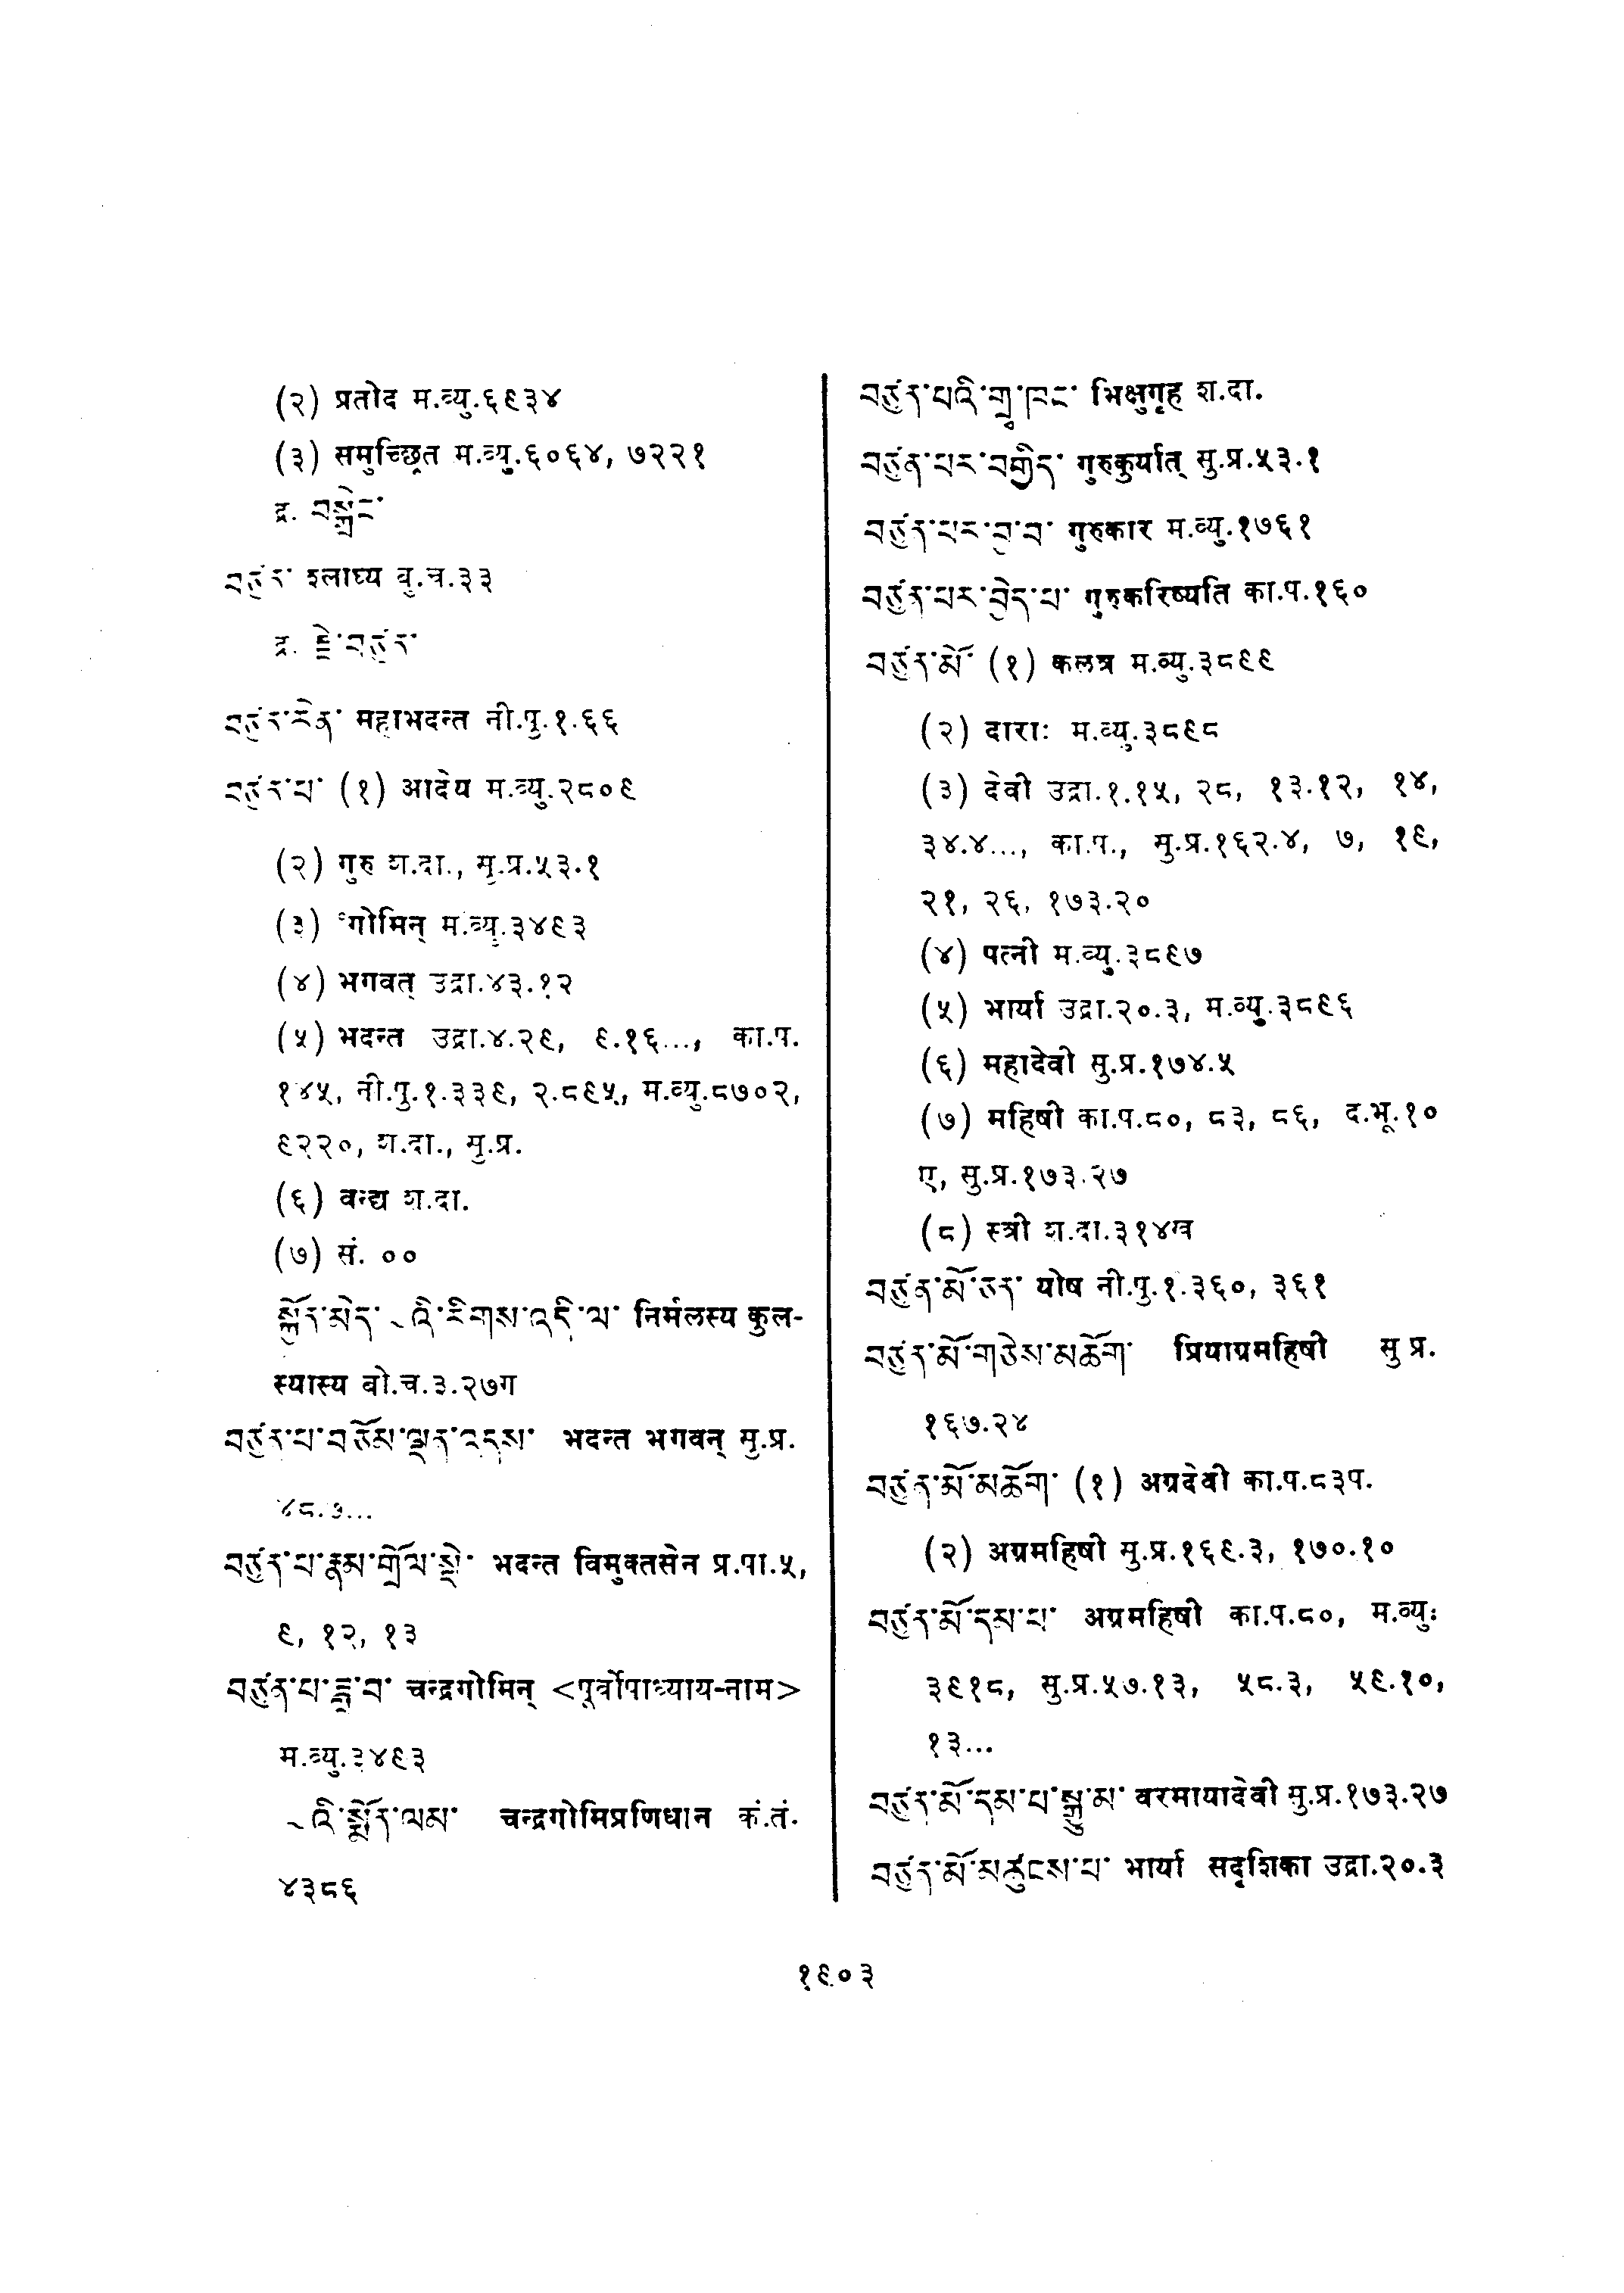 (२) प्रतोद म.व्यु.६९३४
(३) समुच्छ्रित म.व्यु.६०६४, ७२२१
द्र. བསྒྲེང་
བཙུན་ श्लाघ्य बु.च.३३
द्र. རྗེ་བཙུན་
བཙུན་ཆེན་ महाभदन्त नी.पु.१.६६
བཙུན་པ་ (१) आदेय म.व्यु.२८०९
(२) गुरु श.दा., सु.प्र.५३.१
(३) °गोमिन् म.व्यु.३४९३
(४) भगवत् उद्रा.४३.१२
(५) भदन्त उद्रा.४.२९, ९.१६..., का.प.
१४५, नी.पु.१.३३९, २.८९५, म.व्यु.८७०२,
९२२०, श.दा., सु.प्र.
(६) वन्द्य श.दा.
(७) सं. ००
སྐྱོན་མེད་ ~འི་རིགས་འདི་ལ་ निर्मलस्य कुल-
स्यास्य बो.च.३.२७ग
བཙུན་པ་བཅོམ་ལྡན་འདས་ भदन्त भगवन् सु.प्र.
४८.७...
བཙུན་པ་རྣམ་གྲོལ་སྡེ་ भदन्त विमुक्तसेन प्र.पा.५,
९, १२, १३
བཙུན་པ་ཟླ་བ་ चन्द्रगोमिन् <पूर्वोपाध्याय-नाम>
म.व्यु.३४९३
~འི་སྨོན་ལམ་ चन्द्रगोमिप्रणिधान कं.तं.
४३८६
བཙུན་པའི་གྲྭ་ཁང་ भिक्षुगृह श.दा.
བཙུན་པར་བགྱིད་ गुरुकुर्यात् सु.प्र.५३.१
བཙུན་པར་བྱ་བ་ गुरुकार म.व्यु.१७६१
བཙུན་པར་བྱེད་པ་ गुरुकरिष्यति का.प.१६०
བཙུན་མོ་ (१) कलत्र म.व्यु.३८९९
(२) दाराः म.व्यु.३८९८
(३) देवी उद्रा.१.१५, २८, १३.१२, १४,
३४.४..., का.प., सु.प्र.१६२.४, ७, १९,
२१, २६, १७३.२०
(४) पत्नी म.व्यु.३८९७
(५) भार्या उद्रा.२०.३, म.व्यु.३८९६
(६) महादेवी सु.प्र.१७४.५
(७) महिषी का.प.८०, ८३, ८६, द.भू.१०
ए, सु.प्र.१७३.२७
(८) स्त्री श.दा.३१४ख
བཙུན་མོ་ཅན་ योष नी.पु.१.३६०, ३६१
བཙུན་མོ་གཅེས་མཆོག་ प्रियाग्रमहिषी सु प्र.
१६७.२४
བཙུན་མོ་མཆོག་ (१) अग्रदेवी का.प.८३प.
(२) अग्रमहिषी सु.प्र.१६९.३, १७०.१०
བཙུན་མོ་དམ་པ་ अग्रमहिषी का.प.८०, म.व्यु:
३९१८, सु.प्र.५७.१३, ५८.३, ५९.१०,
१३...
བཙུན་མོ་དམ་པ་སྒྱུ་མ་ वरमायादेवी सु.प्र.१७३.२७
བཙུན་མོ་མཚུངས་པ་ भार्या सदृशिका उद्रा.२०.३
१९०३